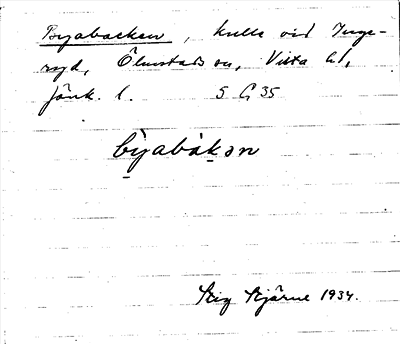 Byabacken, kulle vid Inge-
ryd, Ölmstads sn, Vista hd,
Jönk. l. 5 G 35
by̱abàḵən
Stig Bjärne 1934.